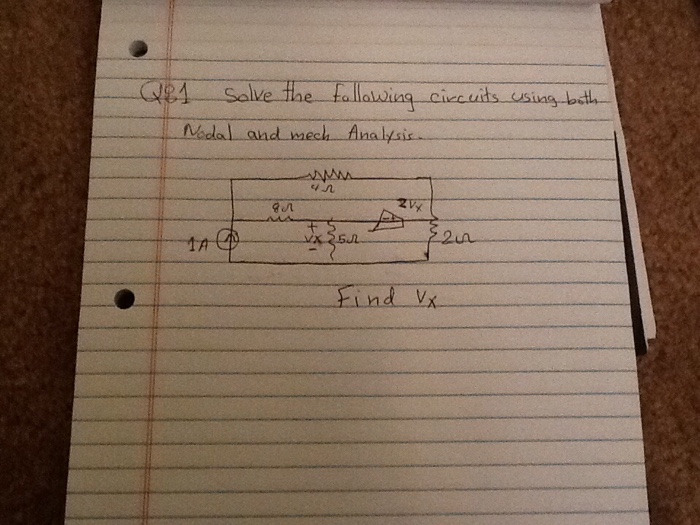 Q81 Solve the following circuits using both
Nodal and mech Analysis.
4Ω
8Ω
2Vx
1A
+
Vx
-
5Ω
- +
2Ω
Find Vx